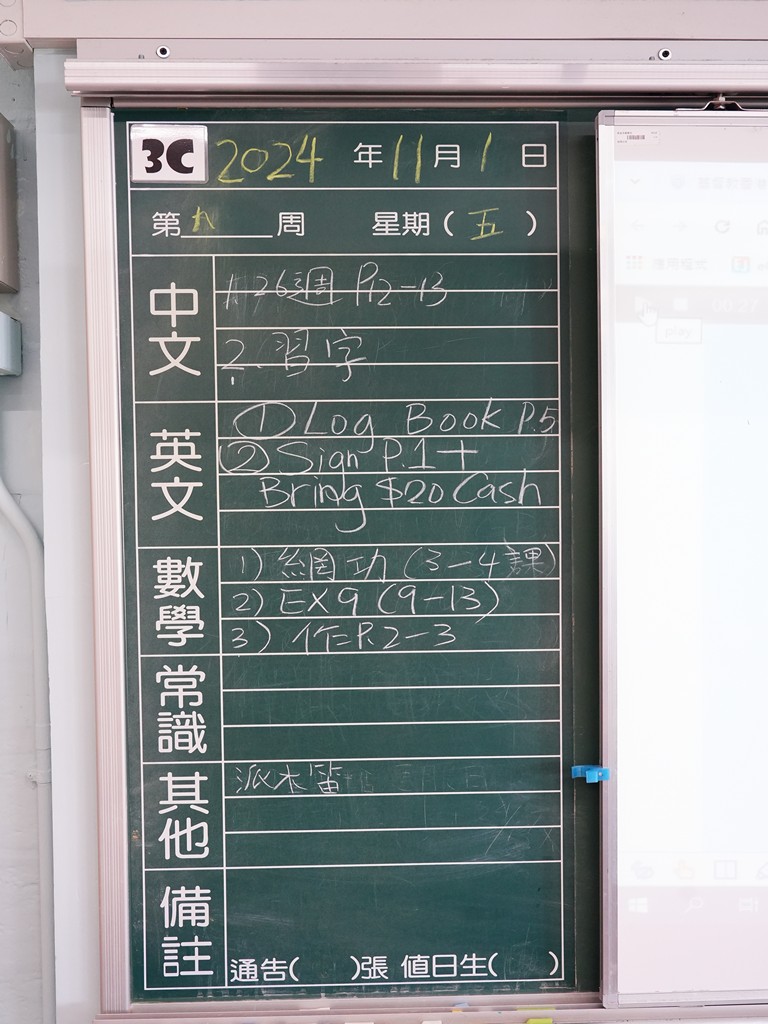 3C 2024年11月1日
第 周 星期(五)
中文
1. 26週 P.12-13
2. 習字
英文
① Log Book P.5
② Sign P.1+
Bring $20 Cash
數學
1) 網功 (3-4課)
2) EX9 (9-13)
3) 作二P.2-3
常識
其他
派木笛
備註
通告( )張 值日生( )
play